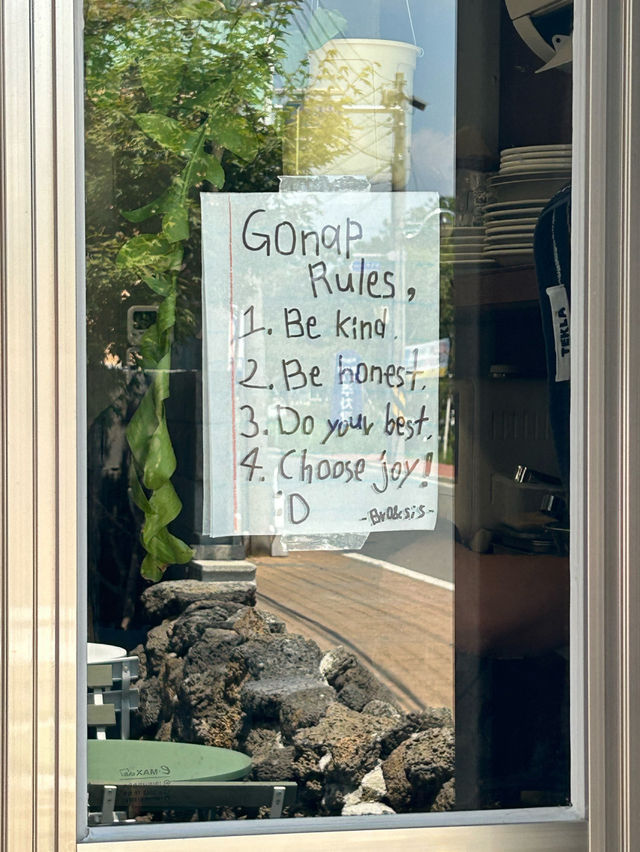 Gonap
Rules,
1. Be kind.
2. Be honest.
3. Do your best.
4. Choose joy!
:D
-Bro&sis-
TEKLA
E-MAX